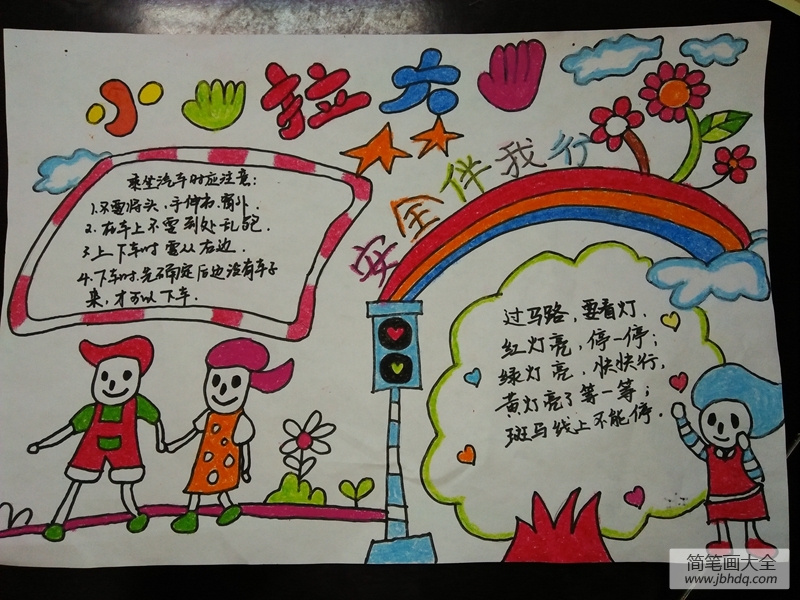 小拉大
安全伴我行
乘坐汽车时应注意:
1.不要将头,手伸出窗外.
2.在车上不要到处乱跑.
3.上下车时要从右边.
4.下车时.先确定后边没有车子
来,才可以下车.
过马路,要看灯,
红灯亮,停一停;
绿灯亮,快快行,
黄灯亮了等一等;
斑马线上不能停.
简笔画大全
www.jbhdq.com